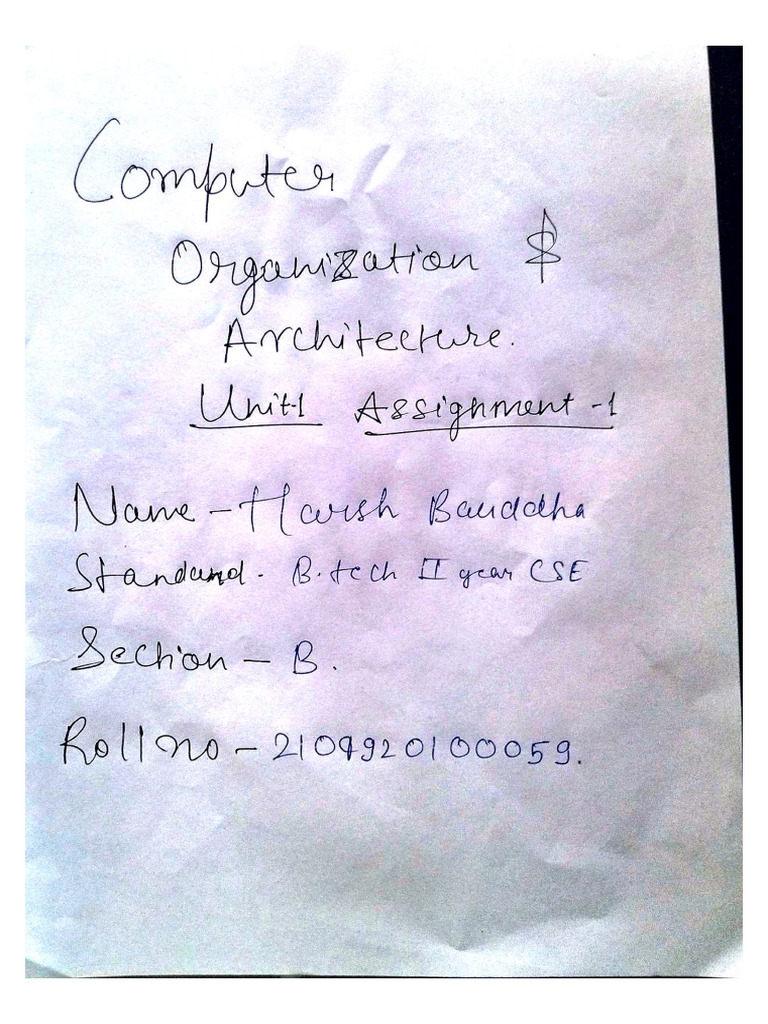 Computer
Organization &
Architecture.
Unit-1 Assignment-1
Name - Harsh Bauddha
Standard - B.tech II year CSE
Section - B.
Roll no - 2104920100059.